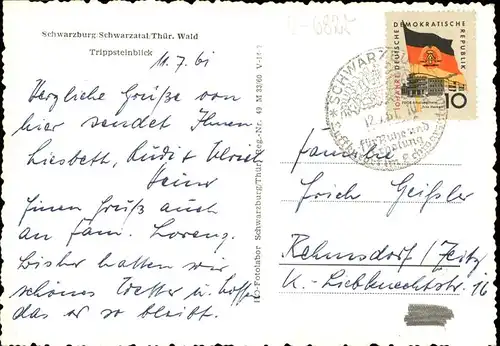 V-6825
Schwarzburg/Schwarzatal/Thür. Wald
Trippsteinblick
11.7.61
Herzliche Grüße von
hier sendet Ihnen
Liesbeth, Rudi u Ulrich
Heinz
Einen Gruß auch
an Fam. Lorenz.
Bisher hatten wir
schönes Wetter u. hoffen
das er so bleibt.
HO-Fotolabor Schwarzburg/Thür. Reg.-Nr. 49 M 33/60 V-14-2
10 JAHRE DEUTSCHE DEMOKRATISCHE REPUBLIK
10
SCHWARZ
12.7.61
Ruhe und
Erholung
Familie
Erich Geißler
Rehmsdorf / Zeitz
K.-Liebknechtstr. 16